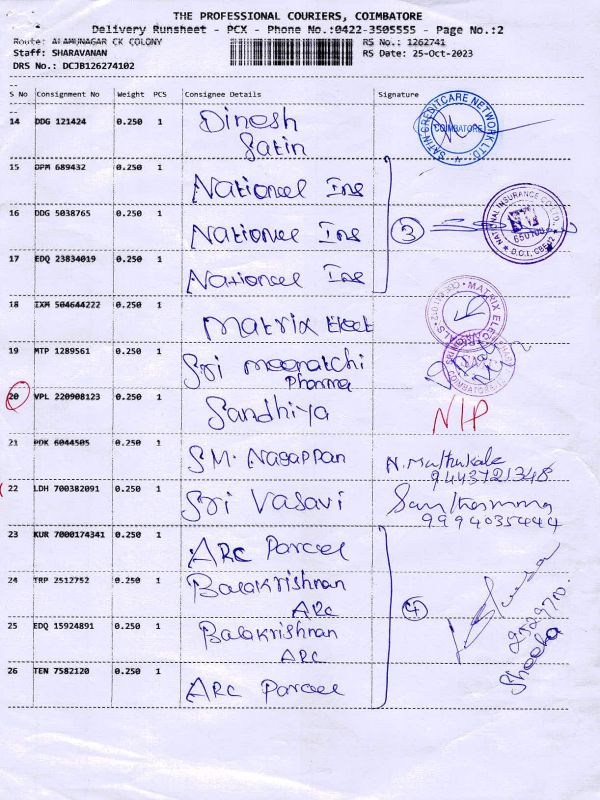 THE PROFESSIONAL COURIERS, COIMBATORE
Delivery Runsheet - PCX - Phone No.:0422-3505555 - Page No.:2
Route: ALAMUNAGAR CK COLONY
RS No.: 1262741
Staff: SHARAVANAN
RS Date: 25-Oct-2023
DRS No.: DCJB126274102
S No Consignment No Weight PCS Consignee Details Signature
14 DDG 121424 0.250 1 Dinesh
Satin
SATIN CREDITCARE NETWORK LTD.
COIMBATORE
15 DPM 689432 0.250 1 National Ins
16 DDG 5038765 0.250 1 National Ins
3
NATIONAL INSURANCE CO. LTD.
650700
17 EDQ 23834019 0.250 1 National Ins
18 IXM 504644222 0.250 1 Matrix Elect
19 MTP 1289561 0.250 1 Sri meenatchi
Pharma
20 VPL 220908123 0.250 1 Sandhiya
N/P
21 PDK 6044505 0.250 1 S.M. Nagappan
9443721348
22 LDH 700382091 0.250 1 Sri Vasavi
9994035444
23 KUR 7000174341 0.250 1 ARC Parcel
24 TRP 2512752 0.250 1 Balakrishnan
ARC
4
25 EDQ 15924891 0.250 1 Balakrishnan
ARC
26 TEN 7582120 0.250 1 ARC Parcel